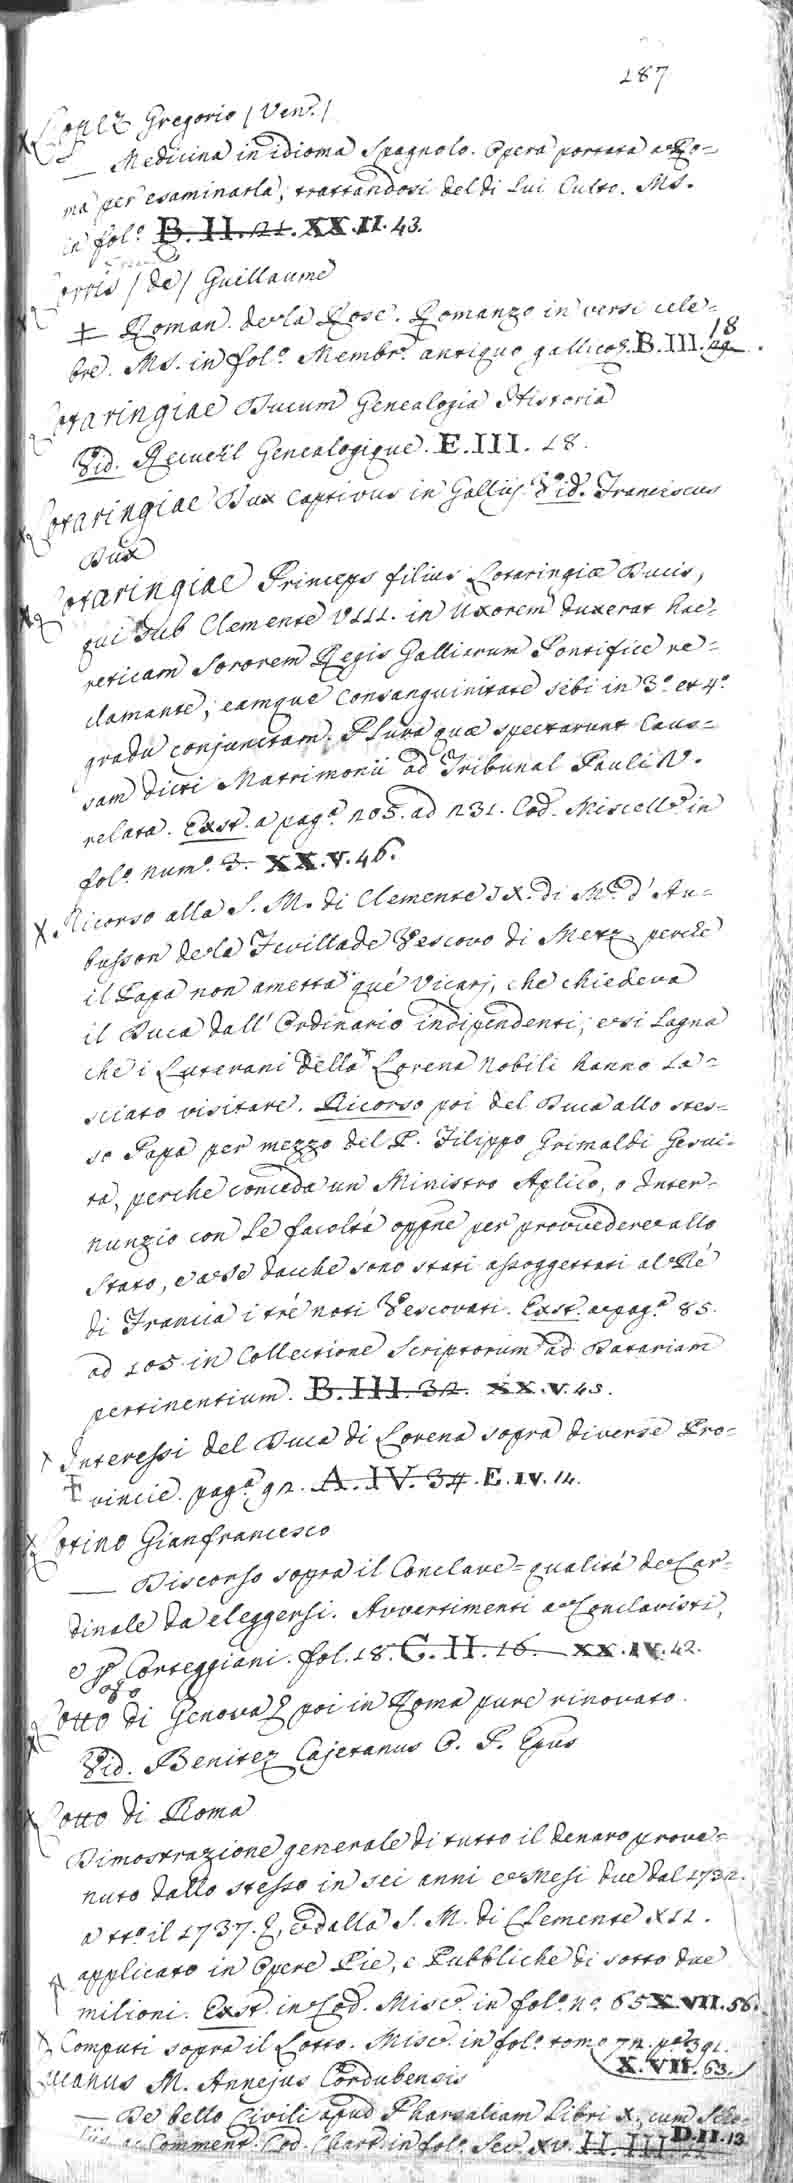 187
Lopez Gregorio (Ven.e)
— Medicina in idioma Spagnolo. Opera portata a Ro=
ma per esaminarla, trattandosi del di lui Culto. Ms.
in fol.o B. II. 21. XX.II.43.
Lorris (de) Guillaume
Roman de la Rose. Romanzo in versi cele=
bre. Ms. in fol.o Membr.o antiquo gallico. B.III. 18
Lotaringiae Ducum Genealogia Historia
Vid. Recueil Genealogique. E.III. 18.
Lotaringiae Dux Captivus in Gallijs. Vid. Franciscus
Dux
Lotaringiae Princeps filius Lotaringiae Ducis,
qui sub Clemente VIII. in Uxorem duxerat hae=
reticam Sororem Regis Galliarum Pontifice re=
clamante, eamque Consanguinitate sibi in 3.o et 4.o
gradu conjunctam. Plura quae spectarunt Caus=
sam dicti Matrimonii ad Tribunal Pauli V.
relata. Exst. a pag.a 205. ad 231. Cod. Miscell.o in
fol.o num.o 3. XX.V.46.
Ricorso alla S. M. di Clemente IX. di M.r d'Au=
busson de la Fevillade Vescovo di Metz perche
il Papa non ametta qué Vicarj, che chiedeva
il Duca dall' Ordinario indipendenti; e si lagna
che i Luterani della Lorena nobili hanno la=
sciato visitare. Ricorso poi del Duca allo stes=
so Papa per mezzo del P. Filippo Grimaldi Gesui=
ta, perche conceda un Ministro Aplico, o Inter=
nunzio con le facoltà oppne per provvedere allo
Stato, e a se dacche sono stati assoggettati al Ré
di Francia i tré noti Vescovati. Exst. a pag.a 85.
ad 105 in Collectione Scriptorum ad Datariam
pertinentium. B.III.32. XX.V.45.
Interessi del Duca di Lorena sopra diverse Pro=
vincie. pag.a 92. A.IV.34. E.IV.14.
Lotino Gianfrancesco
— Discorso sopra il Conclave = qualità de Car=
dinale da eleggersi. Avvertimenti a Conclavisti,
e Corteggiani. fol. 18. C.II.16. XX.IV.42.
Lotto di Genova e poi in Roma pure rinovato.
Vid. Benitez Cajetanus O. P. Epus
Lotto di Roma
Dimostrazione generale di tutto il denaro prove=
nuto dallo stesso in sei anni e Mesi due dal 1732.
a tt.o il 1737. e dalla S. M. di Clemente XII.
applicato in Opere Pie, e Pubbliche di sotto due
milioni. Exst. in Cod. Misc. in fol.o n.o 65 X.VII.56.
Computi sopra il Lotto. Misc. in fol.o tom.o 72. pa. 391.
X.VII.63.
Lucanus M. Annejus Cordubensis
— De bello Civili apud Pharsaliam Libri X, cum Scho=
liis ac Comment. Cod. Chart. in fol.o Sec. XV. H.III. D.II.13